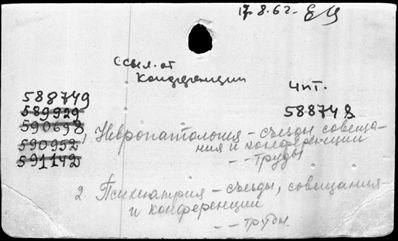 17.8.62.
Ссыл. от
конференции
588749
589929
590698
590952
591142
Чит.
588748
1, Невропатология – съезды, совеща-
ния и конференции
– – труды
2 Психиатрия – съезды, совещания
и конференции
– – труды.